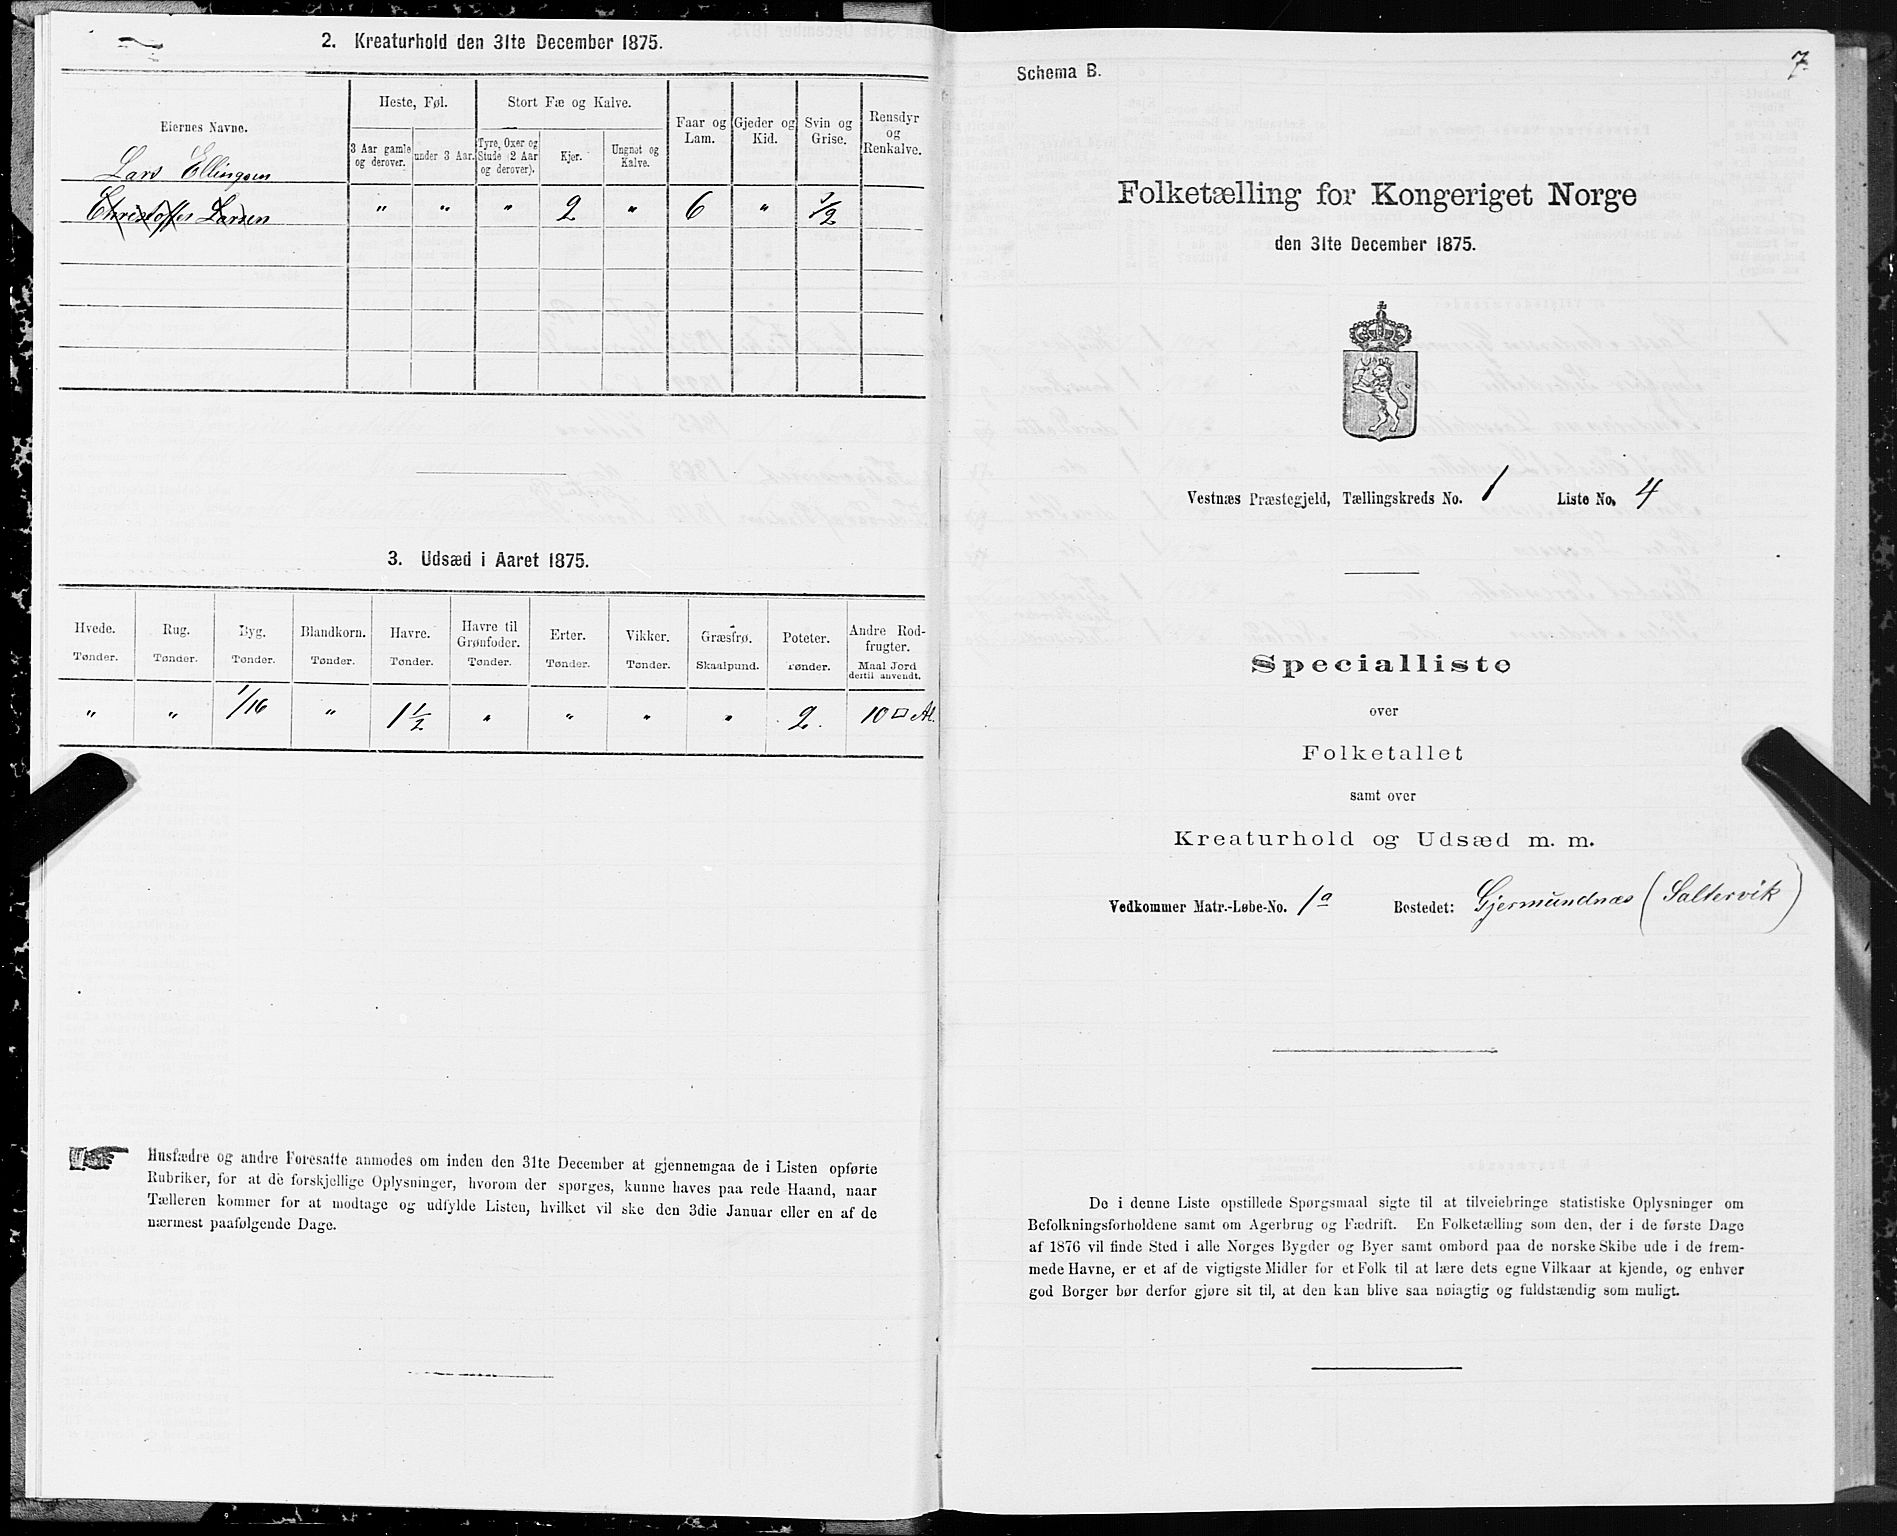 2. Kreaturhold den 31te December 1875.
Eiernes Navne.
Heste, Føl.
Stort Fæ og Kalve.
Faar og Lam.
Gjeder og Kid.
Svin og Grise.
Rensdyr og Renkalve.
3 Aar gamle og derover.
under 3 Aar.
Tyre, Oxer og Stude (2 Aar og derover).
Kjør.
Ungnøt og Kalve.
Lars Ellingsen
Christoffer Larsen " " " 2 " 6 " 1/2
3. Udsæd i Aaret 1875.
Hvede. Rug. Byg. Blandkorn. Havre. Havre til Grønfoder. Erter. Vikker. Græsfrø. Poteter. Andre Rodfrugter.
Tønder. Tønder. Tønder. Tønder. Tønder. Tønder. Tønder. Tønder. Skaalpund. Tønder. Maal Jord dertil anvendt.
" " 1/16 " 1 1/2 " " " " 2. 10 □ Al.
Husfædre og andre Foresatte anmodes om inden den 31te December at gjennemgaa de i Listen opførte
Rubriker, for at de forskjellige Oplysninger, hvorom der spørges, kunne haves paa rede Haand, naar
Tælleren kommer for at modtage og udfylde Listen, hvilket vil ske den 3die Januar eller en af de
nærmest paafølgende Dage.
7
Schema B.
Folketælling for Kongeriget Norge
den 31te December 1875.
Vestnæs Præstegjeld, Tællingskreds No. 1 Liste No. 4
Specialliste
over
Folketallet
samt over
Kreaturhold og Udsæd m. m.
Vedkommer Matr.-Løbe-No. 1a Bostedet: Gjermundnæs (Saltervik)
De i denne Liste opstillede Spørgsmaal sigte til at tilveiebringe statistiske Oplysninger om
Befolkningsforholdene samt om Agerbrug og Fædrift. En Folketælling som den, der i de første Dage
af 1876 vil finde Sted i alle Norges Bygder og Byer samt ombord paa de norske Skibe ude i de frem-
mede Havne, er et af de vigtigste Midler for et Folk til at lære dets egne Vilkaar at kjende, og enhver
god Borger bør derfor gjøre sit til, at den kan blive saa nøiagtig og fuldstændig som muligt.